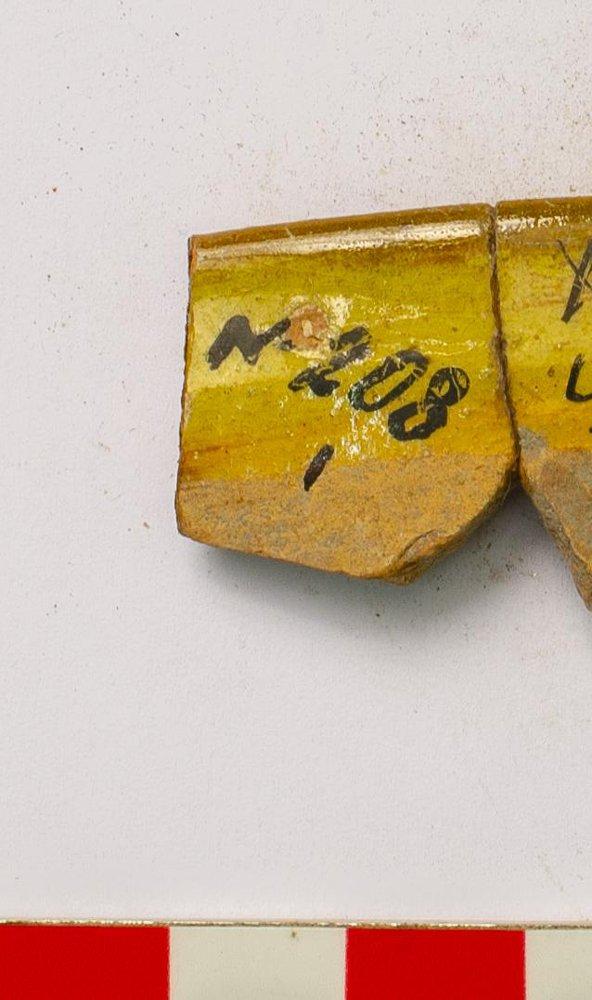 N 208
1